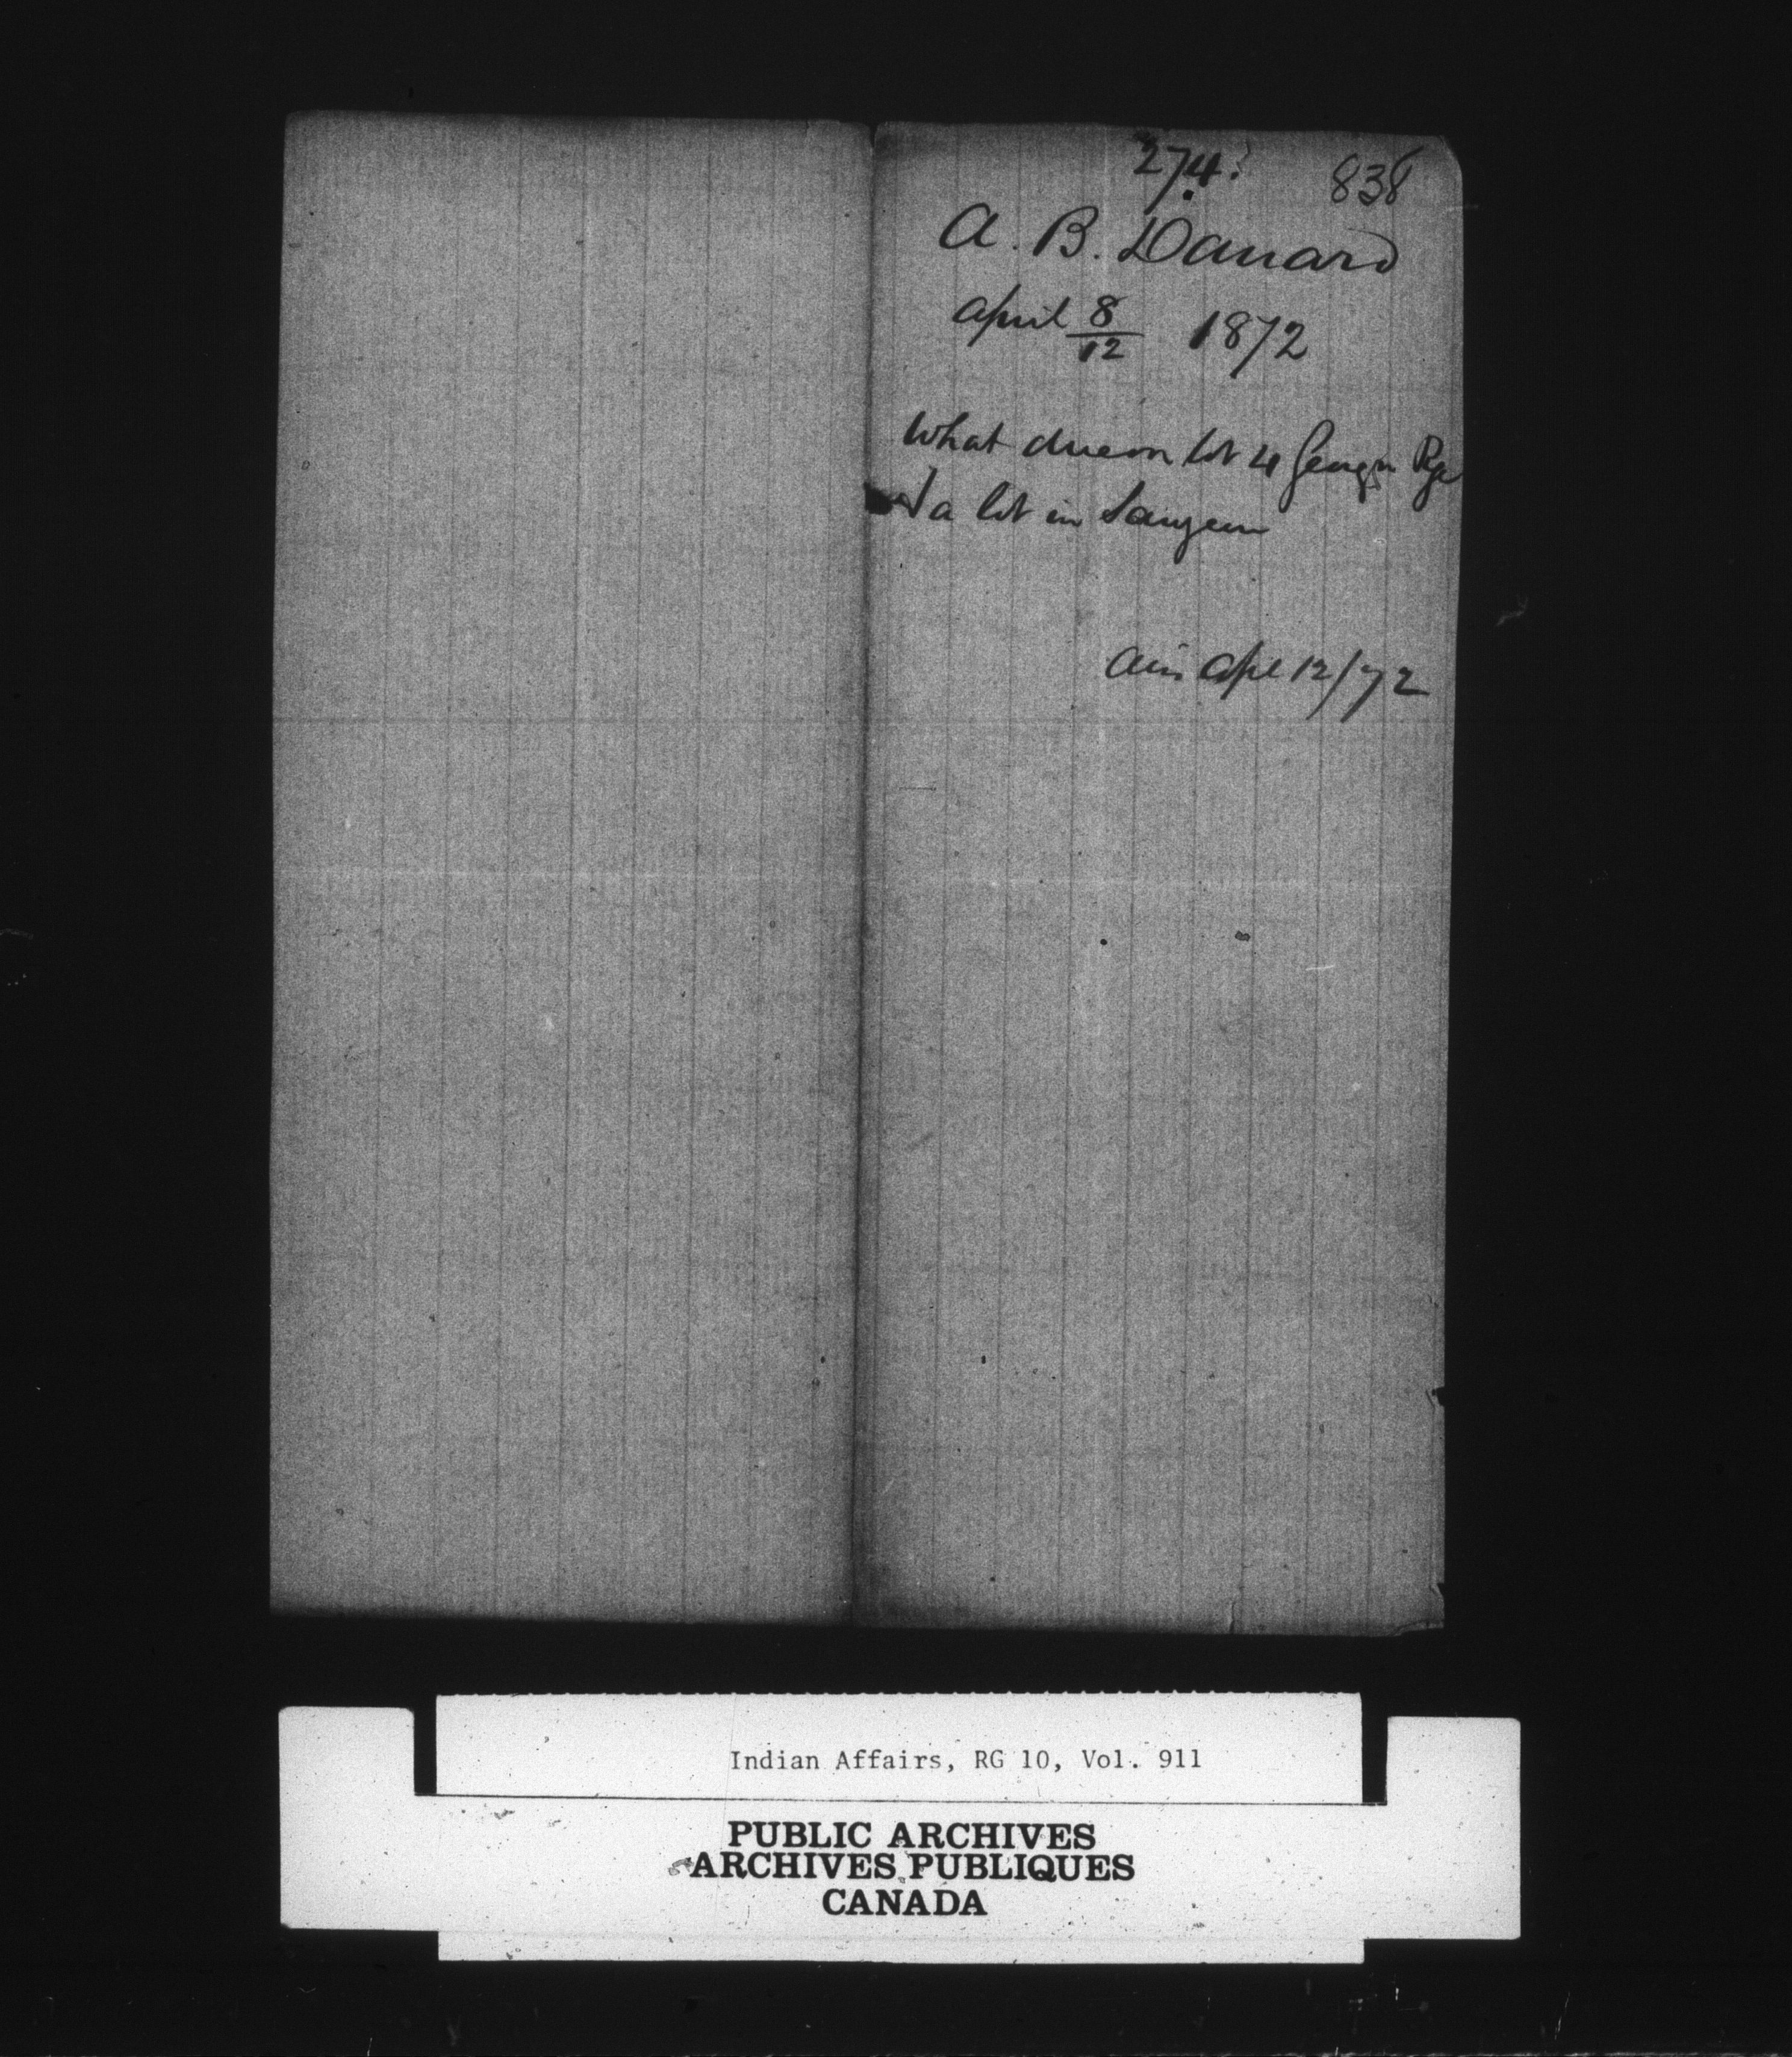 274.
838
A. B. Danard
April 8/12 1872
What due on lot 4 Georgn Rge
& a lot in Saugeen
Ans Apl 12/72
Indian Affairs, RG 10, Vol. 911
PUBLIC ARCHIVES
ARCHIVES PUBLIQUES
CANADA